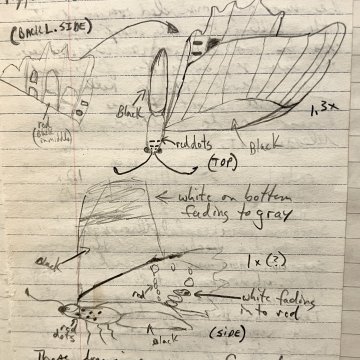 (BACK L. SIDE)
Black
red
(Black
in middle)
1.3x
red dots
Black
(TOP)
white on bottom
fading to gray
Black
1x(?)
red
white fading
into red
red
dots
Black
(SIDE)